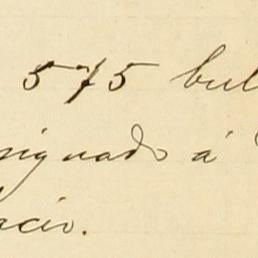 575 bul
signado á
acio.